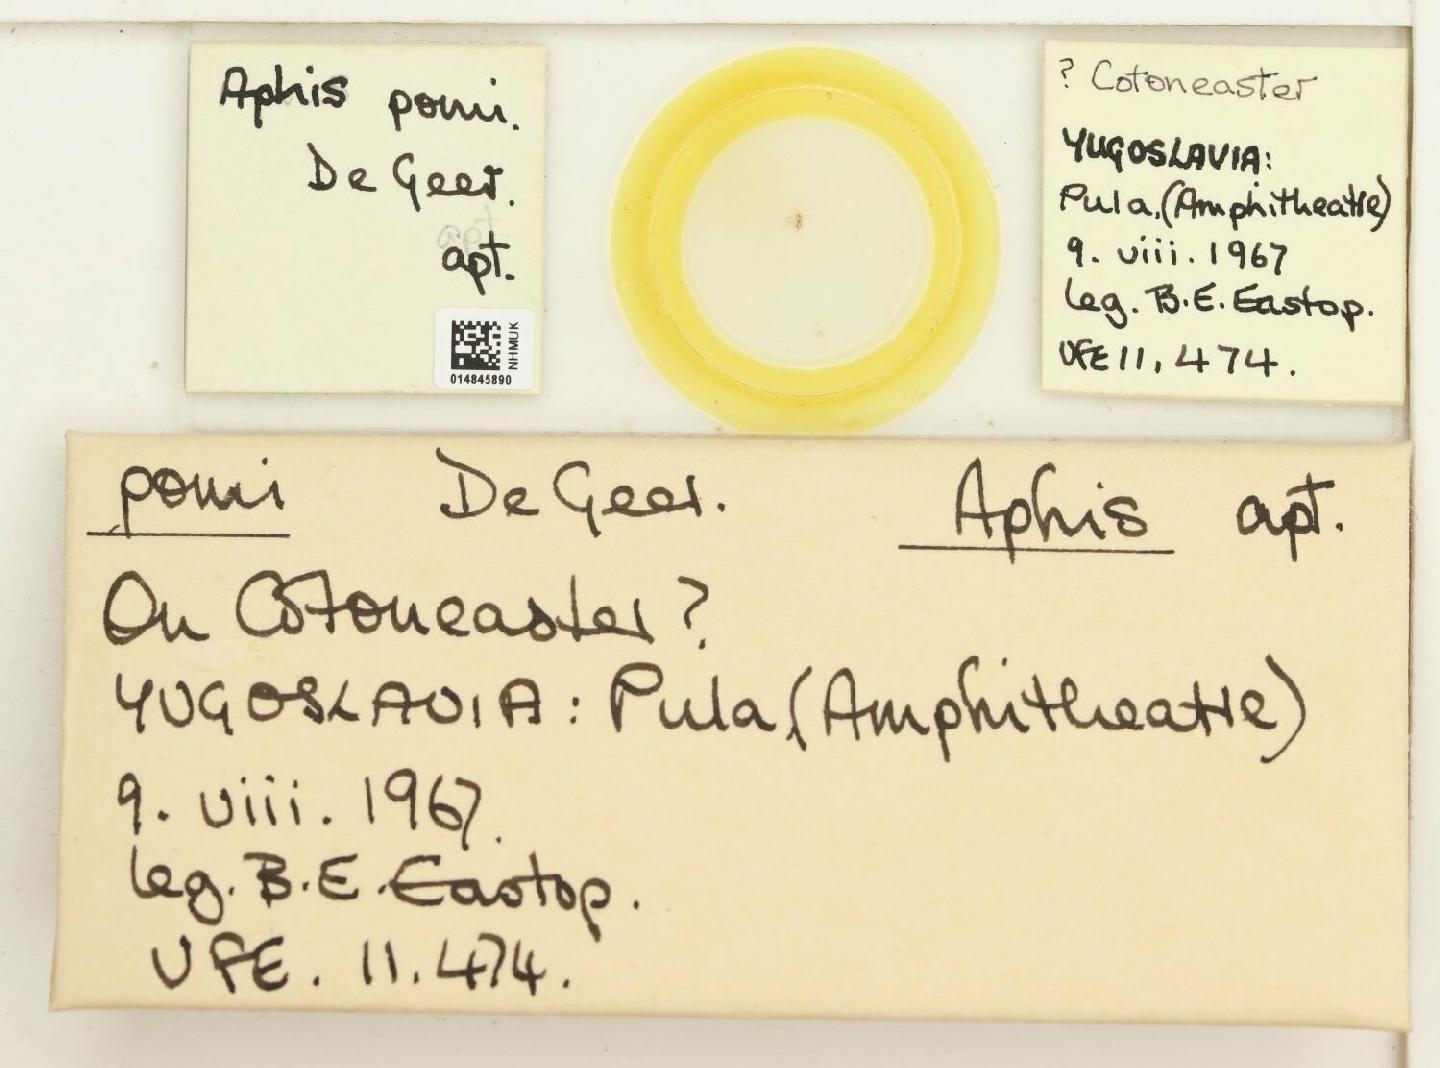 Aphis pomi.
De Geer.
apt.
NHMUK
014845890
? Cotoneaster
YUGOSLAVIA:
Pula, (Amphitheatre)
9. viii. 1967
leg. B.E. Eastop.
VFE 11,474.
pomi De Geer. Aphis apt.
On Cotoneaster?
YUGOSLAVIA: Pula, (Amphitheatre)
9. viii. 1967.
leg. B.E. Eastop.
VFE. 11.474.